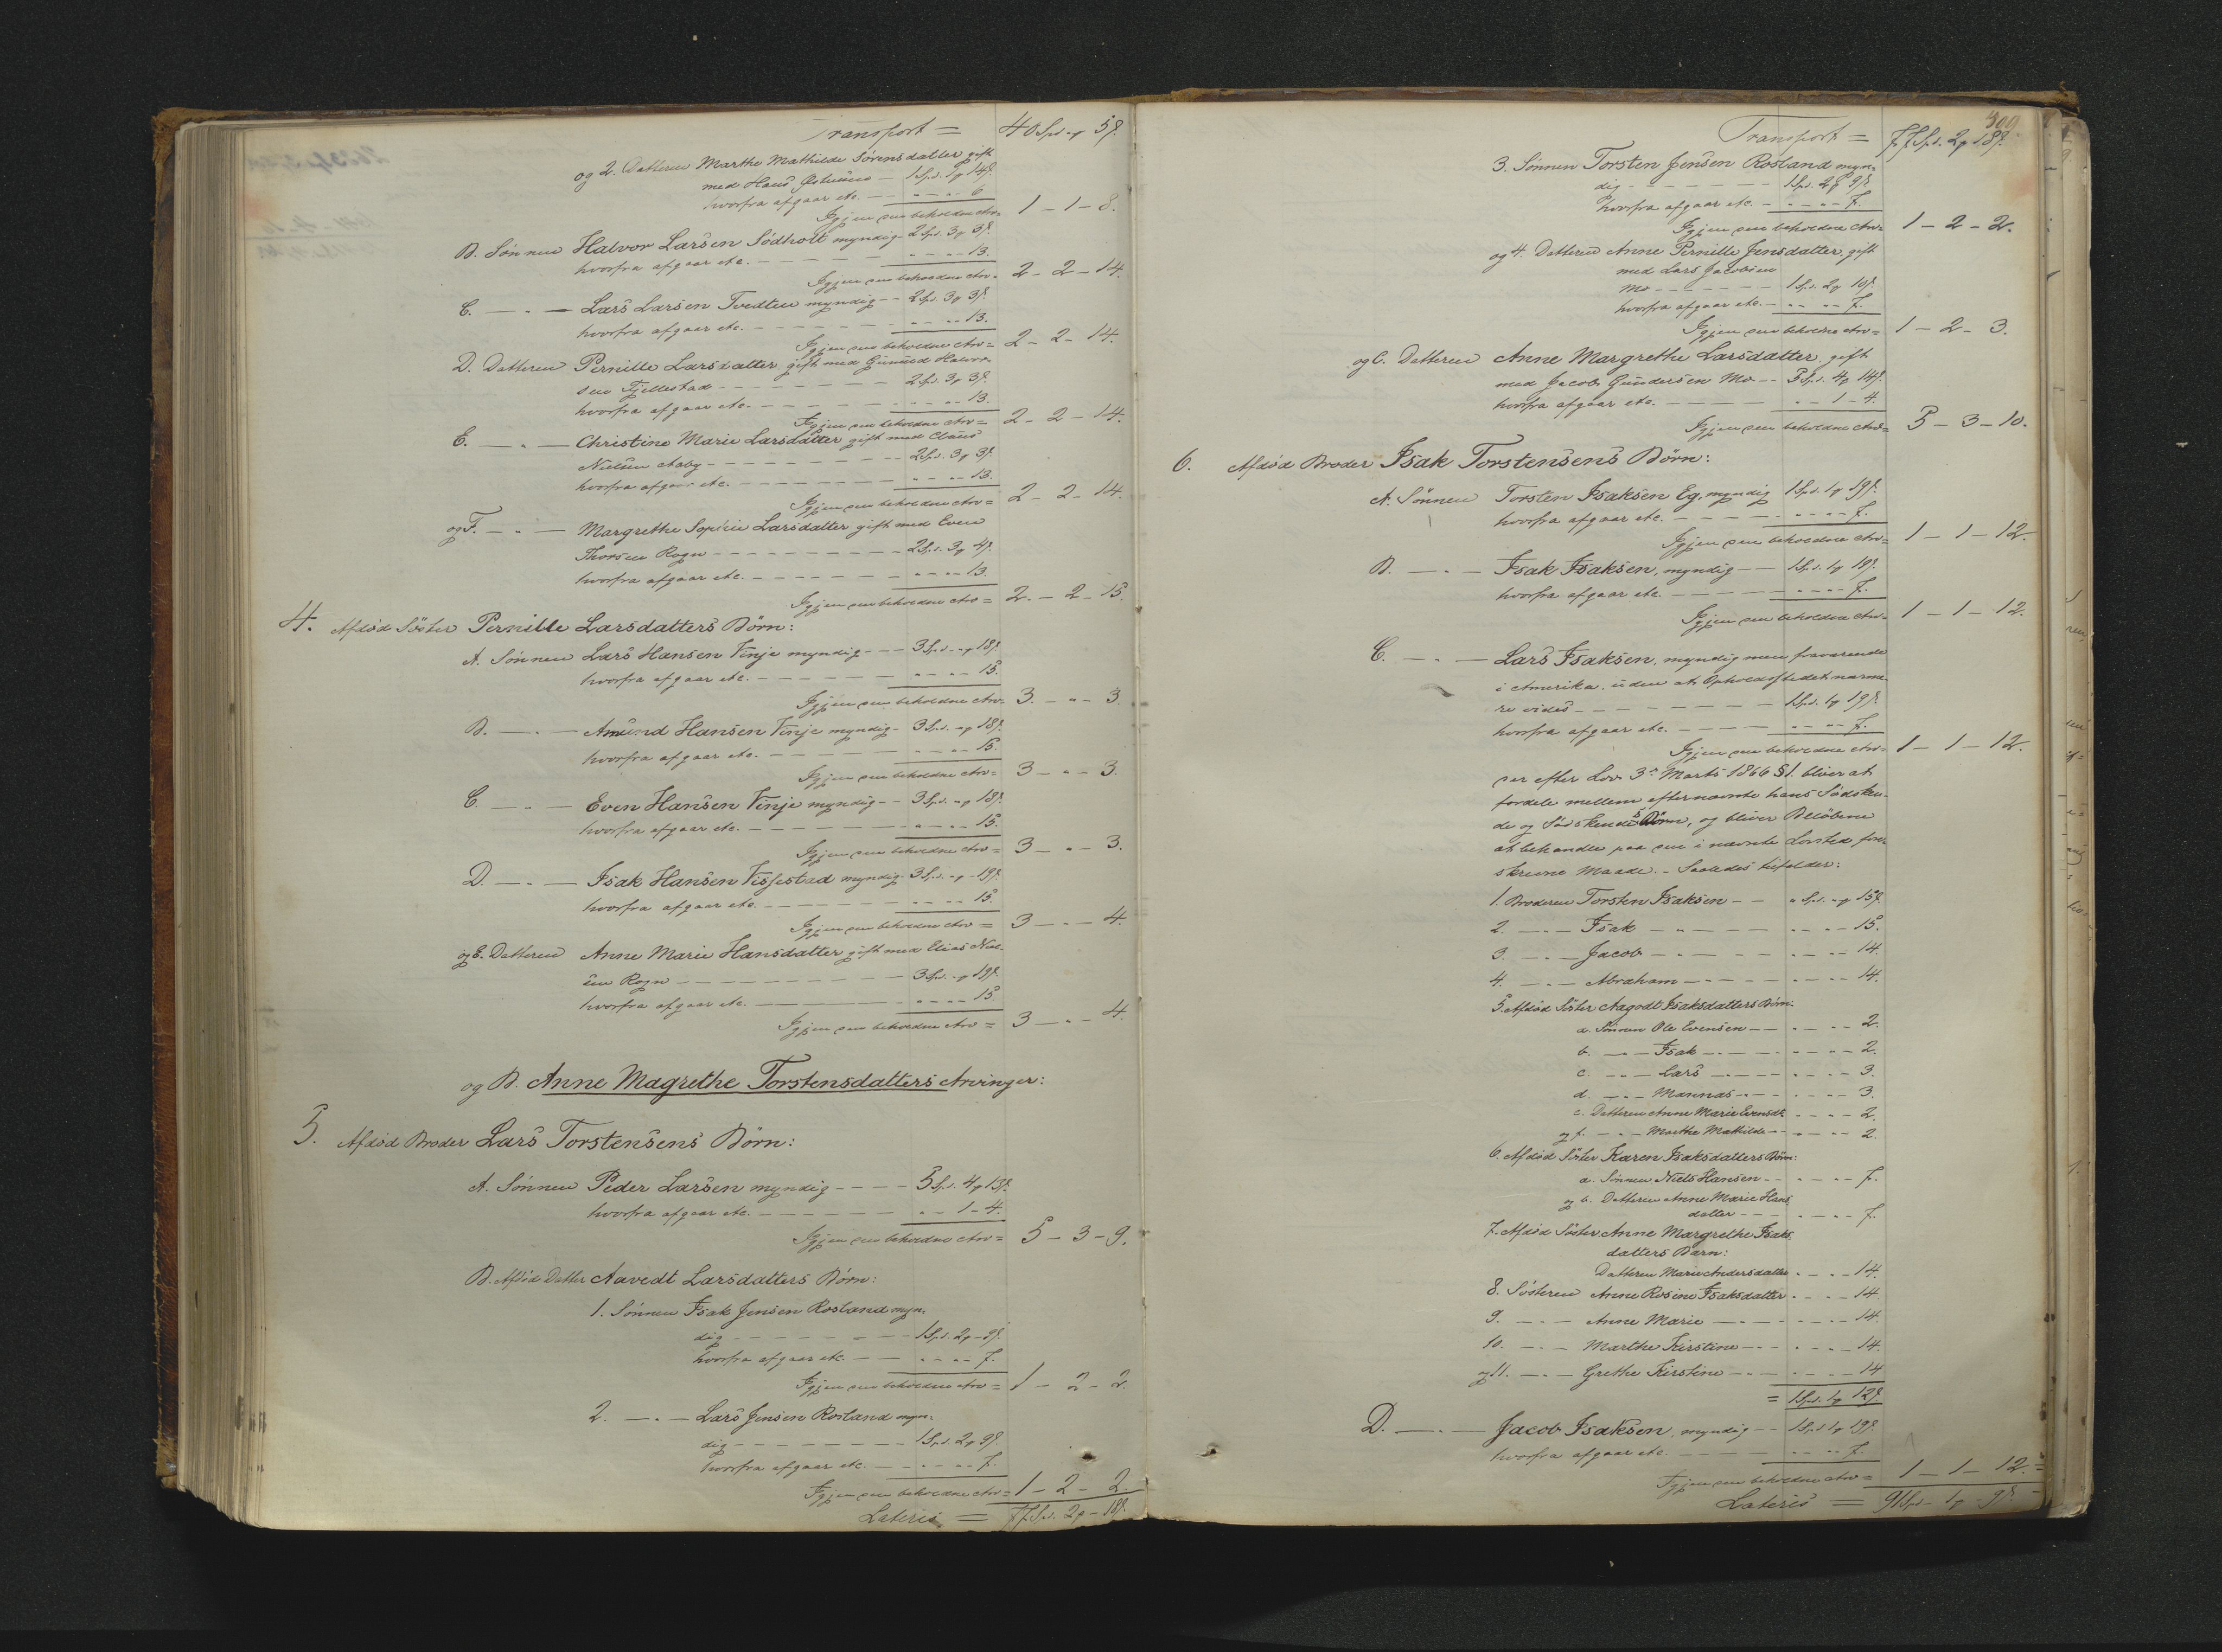 Transport = 40 Spd. " ort 5 s.
og 2. Datteren Marthe Mathilde Sørensdatter gift
med Hans – 1 Spd. 1 ort 14 s.
hvorfra afgaar etc. – " – " – 6
Igjen den beholdne Arv = 1 – 1 – 8.
B. Sønnen Halvor Larsen Södholt myndig – 2 Spd. 3 ort 3 s.
hvorfra afgaar etc. – – – " – " – 13.
Igjen den beholdne Arv = 2 – 2 – 14.
C. — " — Lars Larsen Tvedten myndig – – 2 Spd. 3 ort 3 s.
hvorfra afgaar etc. – – – " – " – 13.
Igjen den beholdne Arv = 2 – 2 – 14.
D. Datteren Pernille Larsdatter gift med Gunuld Halvor-
sen Fjellestad – – – 2 Spd. 3 ort 3 s.
hvorfra afgaar etc. – – – " – " – 13.
Igjen den beholdne Arv = 2 – 2 – 14.
E. — " — Christine Marie Larsdatter gift med Claus
Nielsen Aaby – – – 2 Spd. 3 ort 3 s.
hvorfra afgaar etc. – – – " – " – 13.
Igjen den beholdne Arv = 2 – 2 – 14.
og F. — " — Margrethe Sophie Larsdatter gift med Even
Thorsen Rogn – – – 2 Spd. 3 ort 4 s.
hvorfra afgaar etc. – – – " – " – 13.
Igjen den beholdne Arv = 2. – 2 – 15.
4. Afdöd Söster Pernille Larsdatters Börn:
A. Sönnen Lars Hansen Vinje myndig – – 3 Spd. – " ort 18 s.
hvorfra afgaar etc. – – – " – " – 15.
Igjen den beholdne Arv = 3. – " – 3.
B. — " — Amund Hansen Vinje myndig – 3 Spd. – " ort 18 s.
hvorfra afgaar etc. – – – " – " – 15.
Igjen den beholdne Arv = 3 – " – 3.
C. — " — Even Hansen Vinje myndig – – 3 Spd. – " ort 18 s.
hvorfra afgaar etc. – – – " – " – 15.
Igjen den beholdne Arv = 3 – " – 3.
D. — " — Isak Hansen Visfestad myndig – 3 Spd. – " ort – 19 s.
hvorfra afgaar etc. – – – " – " – 15.
Igjen den beholdne Arv = 3 – " – 4.
og E. Datteren Anne Marie Hansdatter gift med Elias Niel-
sen Rogn – – – 3 Spd. – " ort 19 s.
hvorfra afgaar etc. – – – " – " – 15
Igjen den beholdne Arv = 3 – " – 4.
og B. Anne Magrethe Torstensdatters Arvinger:
5. Afdöd Broder Lars Torstensens Börn:
A. Sönnen Peder Larsen myndig – – – 5 Spd. 4 ort 13 s.
hvorfra afgaar etc. – – – " – 1 – 4.
Igjen den beholdne Arv = 5 – 3 – 9.
B. Afdöd Datter Aavedt Larsdatters Börn:
1. Sönnen Isak Jensen Rosland myn-
dig – – – 1 Spd. 2 ort – 9 s.
hvorfra afgaar etc. – – " – " – 7.
Igjen den beholdne Arv = 1 – 2 – 2.
2. — " — Lars Jensen Rosland myn-
dig – – – 1 Spd. 2 ort 9 s.
hvorfra afgaar etc. – – " – " – 7.
Igjen den beholdne Arv = 1 – 2 – 2.
Lateris = 77 Spd. 2 ort – 18 s.
309.
Transport = 77 Spd. 2 ort 18 s.
3. Sönnen Torsten Jensen Rosland myn-
dig – – – 1 Spd. 2 ort 9 s.
hvorfra afgaar etc. – " – " – 7.
Igjen den beholdne Arv = 1 – 2 – 2.
og 4. Datteren Anne Pernille Jensdatter, gift
med Lars Jacobsen
Mo – – – 1 Spd. 2 ort 10 s.
hvorfra afgaar etc. – " – " – 7.
Igjen den beholdne Arv = 1 – 2 – 3.
og C. Datteren Anne Margrethe Larsdatter, gift
med Jacob Gundersen Mo – – 5 Spd. 4 ort 14 s.
hvorfra afgaar etc. – – – " – 1 – 4.
Igjen den beholdne Arv = 5 – 3 – 10.
6. Afdöd Broder Isak Torstensens Börn:
A. Sönnen Torsten Isaksen Eg, myndig 1 Spd. 1 ort 19 s.
hvorfra afgaar etc. – – – " – " – 7.
Igjen den beholdne Arv = 1 – 1 – 12.
B. — " — Isak Isaksen, myndig – – 1 Spd. 1 ort 19 s.
hvorfra afgaar etc. – – – " – " – 7.
Igjen den beholdne Arv = 1 – 1 – 12.
C. — " — Lars Isaksen, myndig men fraværende
i Amerika, uden at Opholdsstedet nærme-
re vides – – – 1 Spd. 1 ort 19 s.
hvorfra afgaar etc. – – – " – " – 7.
Igjen den beholdne Arv = 1 – 1 – 12.
der efter Lov 3die Marts 1866 § 1. bliver at
fordele mellem efternævnte hans Södsken-
de og Södskendes Börn, og bliver Belöbene
at behandle paa den i nævnte Lovsted fore-
skrevne Maade. – Saaledes tilfalder:
1. Broderen Torsten Isaksen – – " Spd. – " ort 15 s.
2. — " — Isak – " – – – " – " – 15.
3. — " — Jacob – " – – – " – " – 14.
4. — " — Abraham – " – – – " – " – 14.
5. Afdöd Söster Aagodt Isaksdatters Börn:
a. Sönnen Ole Evensen – – " – " – 2.
b. — " — Isak – " – – " – " – 2.
c. — " — Lars – " – – " – " – 3.
d. — " — Mannas – " – – " – " – 3.
e. Datteren Anne Marie Evensdr. " – " – 2.
og f. — " — Marthe Mathilde – " – " – 2.
6. Afdöd Söster Karen Isaksdatters Börn:
a. Sönnen Niels Hansen – – " – " – 7.
og b. Datteren Anne Marie Hans-
datter – – " – " – 7.
7. Afdöd Söster Anne Margrethe Isaks-
datters Barn:
Datteren Marie Andersdatter " – " – 14.
8. Sösteren Anne Rosine Isaksdatter " – " – 14.
9. — " — Anne Marie — " – " – " – 14.
10. — " — Marthe Kirstine – " – " – " – 14.
og 11. — " — Grethe Kirstine – " – " – " – 14
= 1 Spd. 1 ort 12 s.
D. — " — Jacob Isaksen, myndig – – 1 Spd. 1 ort 19 s.
hvorfra afgaar etc. – – – " – " – 7.
Igjen den beholdne Arv = 1 – 1 – 12.
Lateris = 91 Spd. – 1 ort – 9 s.